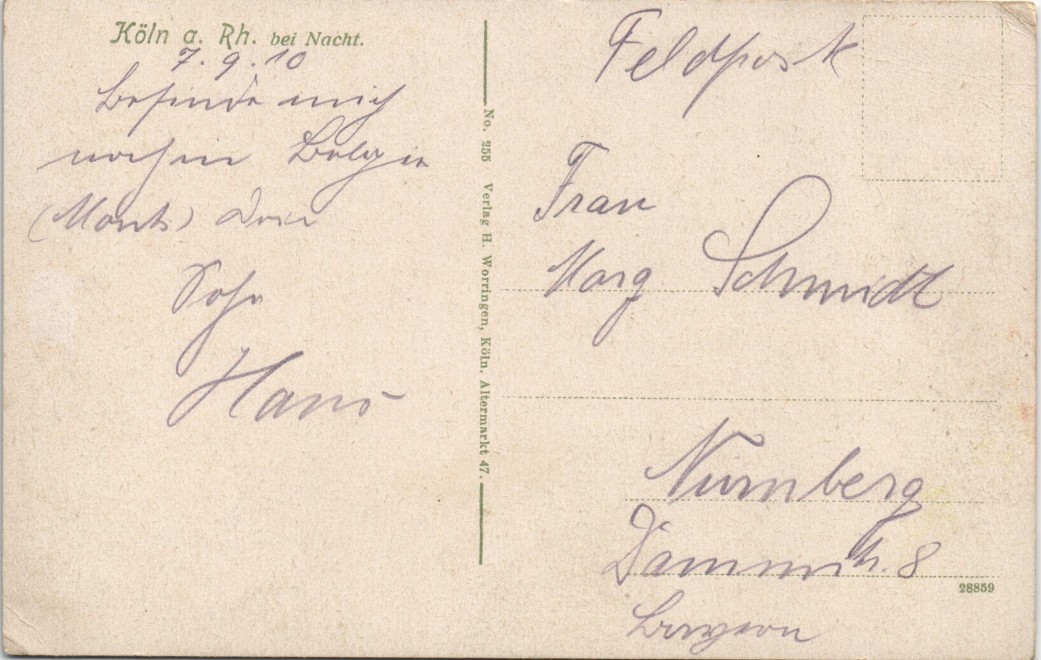 Köln a. Rh. bei Nacht.
7.9.10
Befinde mich
noch in Belgien
(Monts) Dein
Sohn
Hans
No. 255 Verlag H. Worringen, Köln, Altermarkt 47.
Feldpost
Frau
Marg Schmidt
Nürnberg
Dammstr. 8
Bayern
28859